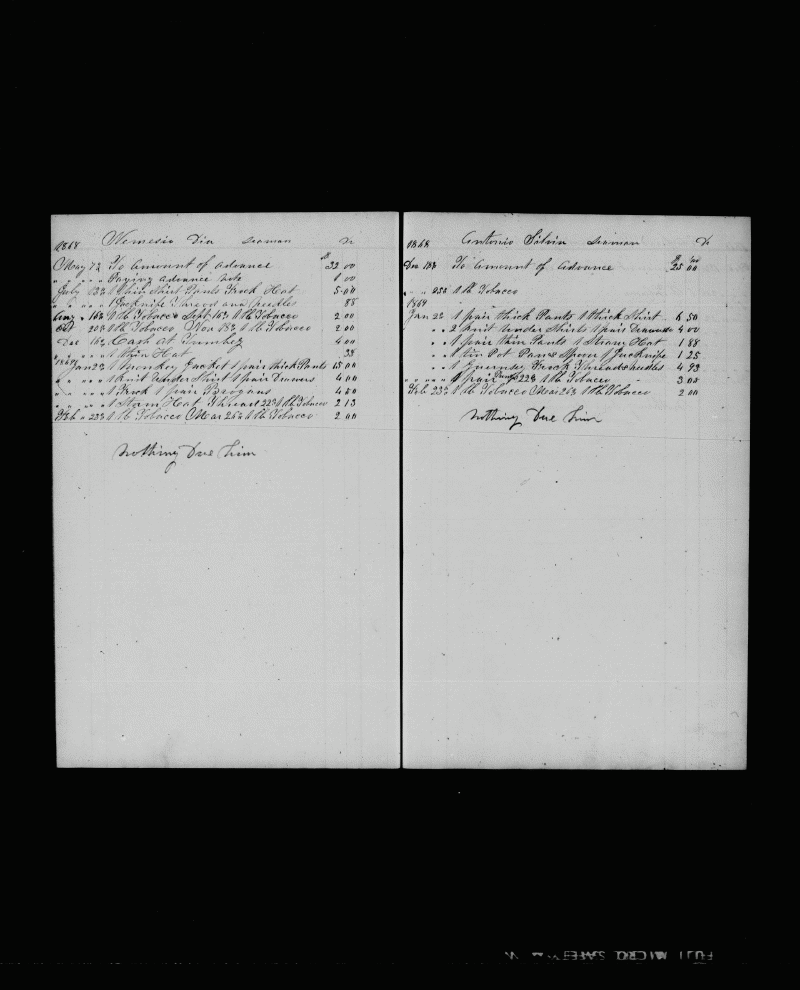 1868 Nemesio Dia Seaman Dr
May 7th To Amount of Advance $ 32 00
" " " " Paying Advance note 1 00
July 13th 1 Thin Shirt Pants Frock Hat 5 00
" " " " 1 Jacknife Thread and Needles 88
Aug " 16th 1 lb Tobacco Sept 16th 1 lb Tobacco 2 00
Oct 20th 1 lb Tobacco Nov 18th 1 lb Tobacco 2 00
Dec 16th Cash at Tumbez 4 00
" " " " 1 thin Hat 38
1869 Jan 22 1 Monkey Jacket 1 pair thick Pants 15 00
" " " " 1 Knit Under Shirt 1 pair Drawers 4 00
" " " " 1 Frock 1 pair Brogans 4 50
" " " " 1 Straw Hat Thread 22d 1 lb Tobacco 2 13
Feb " 23d 1 lb Tobacco Mar 26th 1 lb Tobacco 2 00
Nothing Due him
1868 Antonio Silvia Seaman Dr
Dec 18th To Amount of Advance $ 25 00
" " 25th 1 lb Tobacco
1869
Jan 22 1 pair thick Pants 1 thick Shirt 6 50
" " 2 Knit Under Shirts 1 pair Drawers 4 00
" " 1 pair thin Pants 1 Straw Hat 1 88
" " 1 tin Pot Pan & Spoon 1 Jacknife 1 25
" " 1 Guernsey Frock Thread & needles 4 93
" " " " 1 pair 22d 1 lb Tobacco 3 00
Feb 23d 1 lb Tobacco Mar 26th 1 lb Tobacco 2 00
Nothing Due him